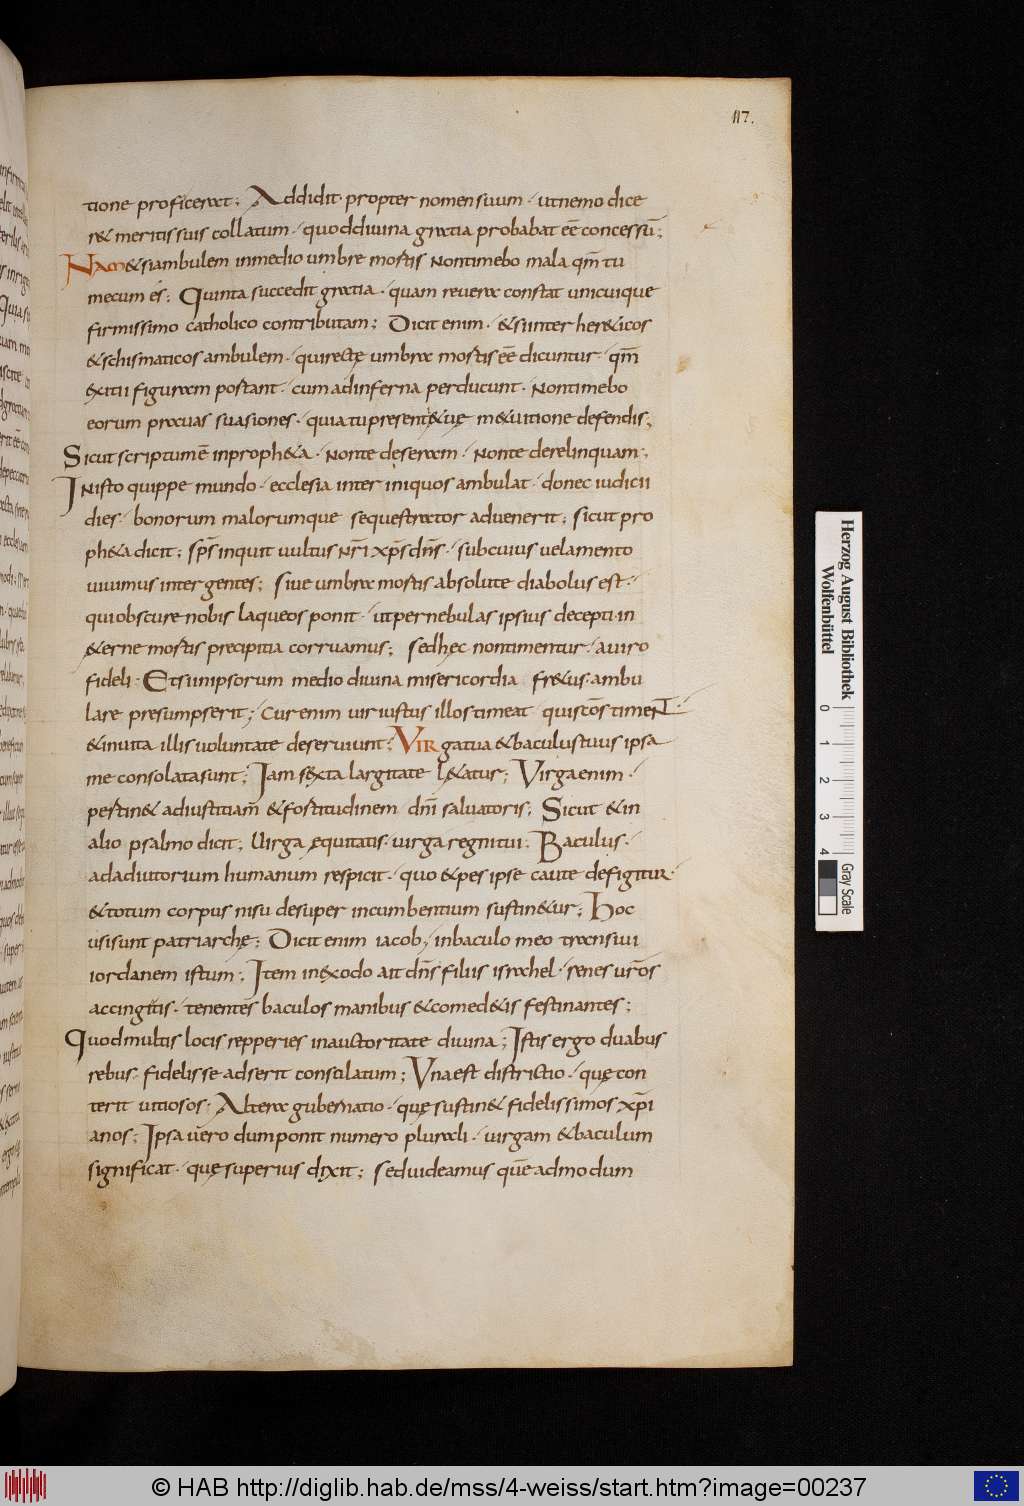 117.
tione proficerext; Addidit propter nomen suum · ut nemo dice
r& meritis suis collatum · quod diuina gratia probabat eē concessū;
Nam & si ambulem in medio umbre mortis non timebo mala qm̄ tu
mecum es; Quinta succedit gratia · quam reuera constat unicuique
firmissimo catholico contributam; Dicit enim · & si inter her&icos
& schismaticos ambulem · qui rectę umbra mortis eē dicuntur · qm̄
exitii figuram portant · cum ad inferna perducunt · Non timebo
eorum prauas suasiones · quia tu presentię tuę me uitione defendis;
Sicut scriptum ē in proph&a · Non te deseram · Non te derelinquam;
In isto quippe mundo · ecclesia inter iniquos ambulat · donec iudicii
dies · bonorum malorumque sequestrator aduenerit; sicut pro
ph&a dicit; sps̄ inquit uultus nr̄i xp̄s dn̄s · sub cuius uelamento
uiuimus inter gentes; siue umbra mortis absolute diabolus est ·
qui obscure nobis laqueos ponit · ut per nebulas ipsius decepti · in
&erne mortis precipitia corruamus; sed hęc non timentur · a uiro
fideli · Etsi in ipsorum medio diuina misericordia fr&us · ambu
lare presumpserit; Cur enim uir iustus illos timeat quis eōs timent ·
& inuita illis uoluntate deseruiunt; Virga tua & baculus tuus ipsa
me consolata sunt; Iam sexta largitate l&atur; Virga enim ·
pertin& ad iustitiam & fortitudinem dn̄i saluatoris; Sicut & in
alio psalmo dicit; Uirga ęquitatis · uirga regni tui; Baculus ·
ad adiutorium humanum respicit · quo & pes ipse caute defigitur ·
& totum corpus nisu desuper incumbentium sustin&ur; Hoc
usi sunt patriarchę; Dicit enim iacob · in baculo meo transiui
iordanem istum; Item in exodo ait dn̄s filiis israhel · renes ur̄os
accingitis · tenentes baculos manibus & comed&is festinantes;
Quod multis locis repperies in auctoritate diuina; Istis ergo duabus
rebus · fidelis se adserit consolatum; Una est districtio · quę con
terit uitiosos · Altera gubernatio · quę sustin& fidelissimos xp̄i
anos; Ipsa uero dum ponit numero plurali · uirgam & baculum
significat · quę superius dixit; sed uideamus quēadmodum
Herzog August Bibliothek
Wolfenbüttel
0 1 2 3 4
Gray Scale
© HAB http://diglib.hab.de/mss/4-weiss/start.htm?image=00237